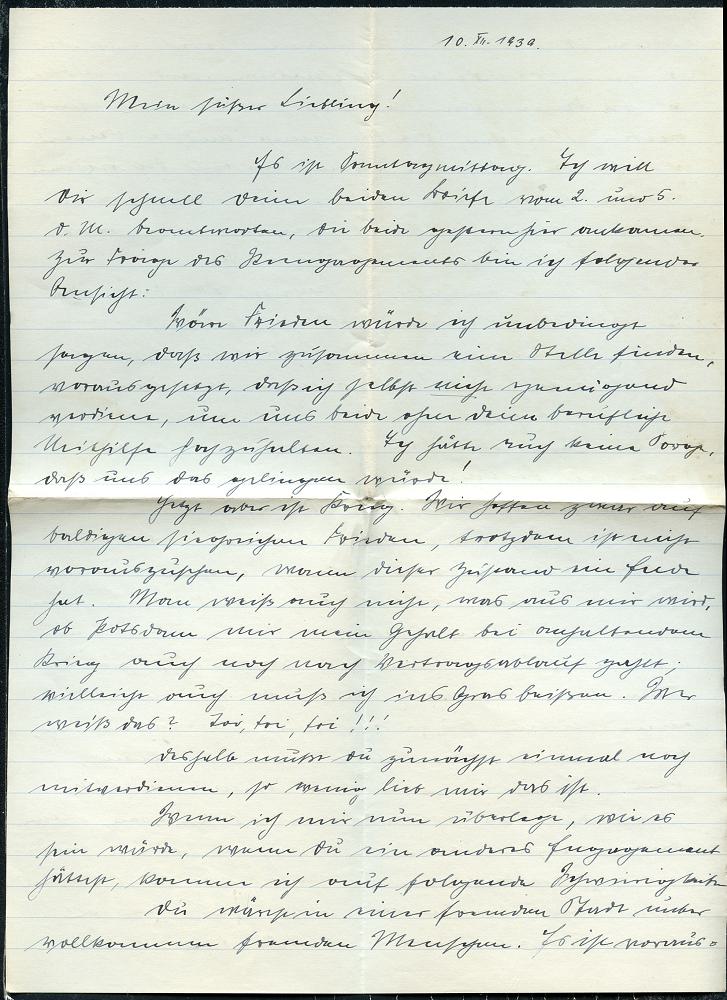 10. XII. 1939.
Mein süßer Liebling!
Es ist Sonntagmittag. Ich will
Dir schnell Deine beiden Briefe vom 2. und 5.
d. M. beantworten, die beide gestern hier ankamen.
Zur Frage des Engagements bin ich folgender
Ansicht:
Wäre Frieden würde ich unbedingt
sagen, daß wir zusammen eine Stelle finden,
vorausgesetzt, daß ich selbst nicht genügend
verdiene, um uns beide ohne Deine berufliche
Mithilfe hochzuhalten. Ich hätte auch keine Sorge,
daß uns das gelingen würde!
Jetzt aber ist Krieg. Wir hoffen zwar auf
baldigen siegreichen Frieden, trotzdem ist nicht
vorauszusehen, wann dieser Zustand ein Ende
hat. Man weiß auch nicht, was aus mir wird,
ob Potsdam mir mein Gehalt bei anhaltendem
Krieg auch noch nach Vertragsablauf zahlt;
vielleicht auch muß ich ins Gras beißen. Wer
weiß das? Toi, toi, toi!!!
Deshalb mußt Du zunächst einmal noch
mitverdienen, so wenig lieb mir das ist.
Wenn ich mir nun überlege, wie es
sein würde, wenn Du ein anderes Engagement
hättest, komme ich auf folgende Schwierigkeiten
Du wärst in einer fremden Stadt unter
vollkommen fremden Menschen. Es ist voraus=